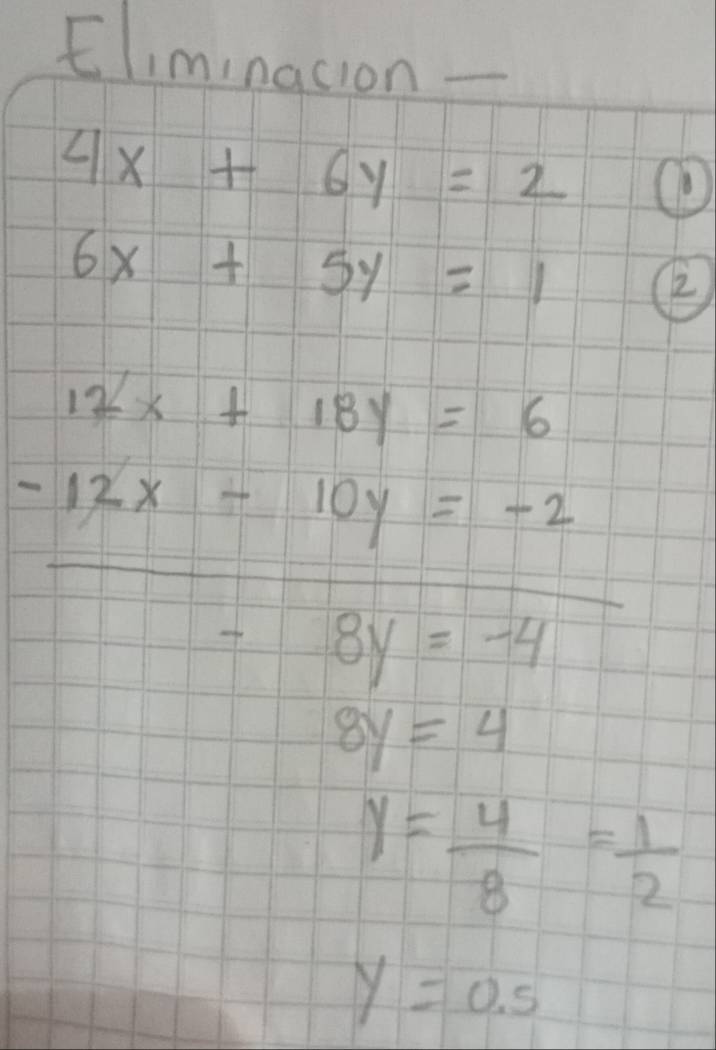 Eliminacion —
4x + 6y = 2 ①
6x + 5y = 1 ②
12x + 18y = 6
-12x - 10y = -2
- 8y = -4
8y = 4
y = 4/8 = 1/2
y = 0.5